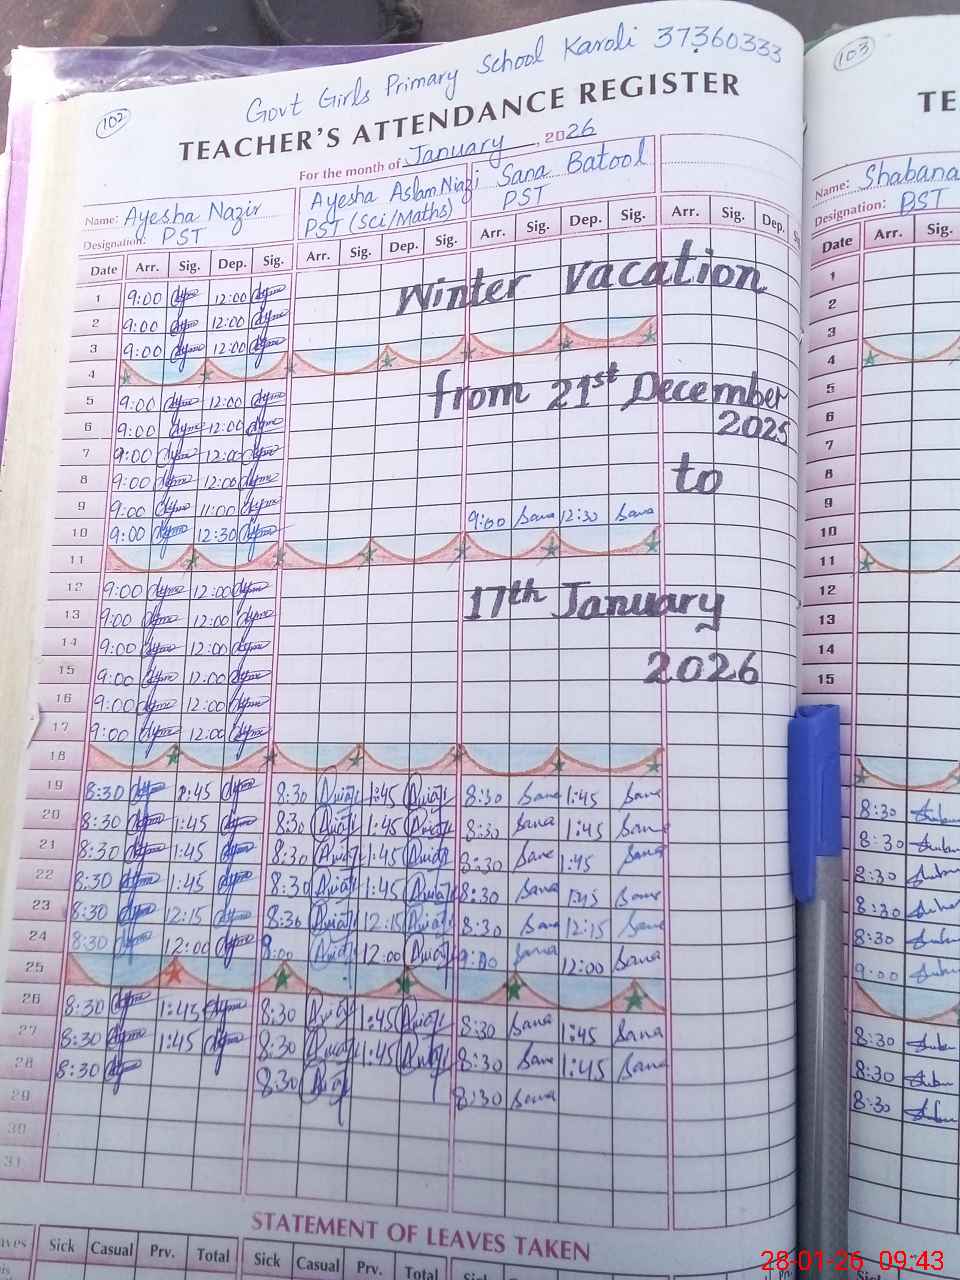 Govt Girls Primary School Karoli 37360333
102
TEACHER'S ATTENDANCE REGISTER
For the month of January, 2026
Name: Ayesha Nazir
Designation: PST
Ayesha Aslam Niazi
PST (Sci/Maths)
Sana Batool
PST
Date Arr. Sig. Dep. Sig. Arr. Sig. Dep. Sig. Arr. Sig. Dep. Sig. Arr. Sig. Dep.
Winter Vacation
from 21st December
2025
to
17th January
2026
1 9:00 12:00
2 9:00 12:00
3 9:00 12:00
4
5 9:00 12:00
6 9:00 12:00
7 9:00 12:00
8 9:00 12:00
9 9:00 11:00
10 9:00 12:30 9:00 Sana 12:30 Sana
11
12 9:00 12:00
13 9:00 12:00
14 9:00 12:00
15 9:00 12:00
16 9:00 12:00
17 9:00 12:00
18
19 8:30 1:45 8:30 Niazi 1:45 Niazi 8:30 Sana 1:45 Sana
20 8:30 1:45 8:30 Niazi 1:45 Niazi 8:30 Sana 1:45 Sana
21 8:30 1:45 8:30 Niazi 1:45 Niazi 8:30 Sana 1:45 Sana
22 8:30 1:45 8:30 Niazi 1:45 Niazi 8:30 Sana 1:45 Sana
23 8:30 12:15 8:30 Niazi 12:15 Niazi 8:30 Sana 12:15 Sana
24 8:30 12:00 9:00 Niazi 12:00 Niazi 9:00 Sana 12:00 Sana
25
26 8:30 1:45 8:30 Niazi 1:45 Niazi 8:30 Sana 1:45 Sana
27 8:30 1:45 8:30 Niazi 1:45 Niazi 8:30 Sana 1:45 Sana
28 8:30 8:30 Niazi 8:30 Sana
29
30
31
STATEMENT OF LEAVES TAKEN
Sick Casual Prv. Total Sick Casual Prv. Total Sick Casual
103
TE
Name: Shabana
Designation: PST
Date Arr. Sig.
1
2
3
4
5
6
7
8
9
10
11
12
13
14
15
8:30
8:30
8:30
8:30
8:30
9:00
8:30
8:30
8:30
28-01-26 09:43